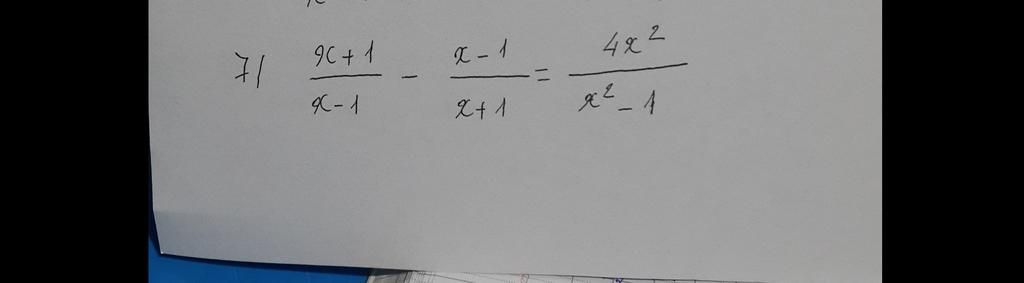 7/ (x+1)/(x-1) - (x-1)/(x+1) = 4x²/(x²-1)